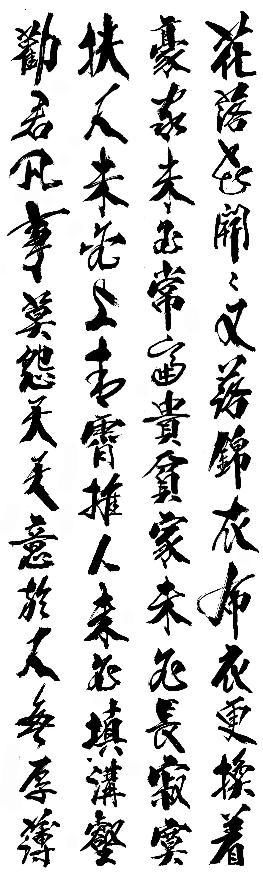 花落花開〻又落錦衣布衣更換着
豪家未必常富貴貧家未必長寂寞
扶人未必上青霄推人未必填溝壑
勸君凡事莫怨天天意於人無厚薄